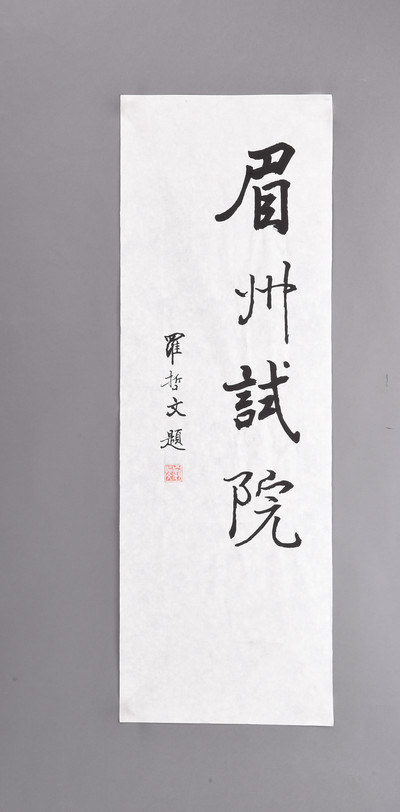 眉州試院
羅哲文題